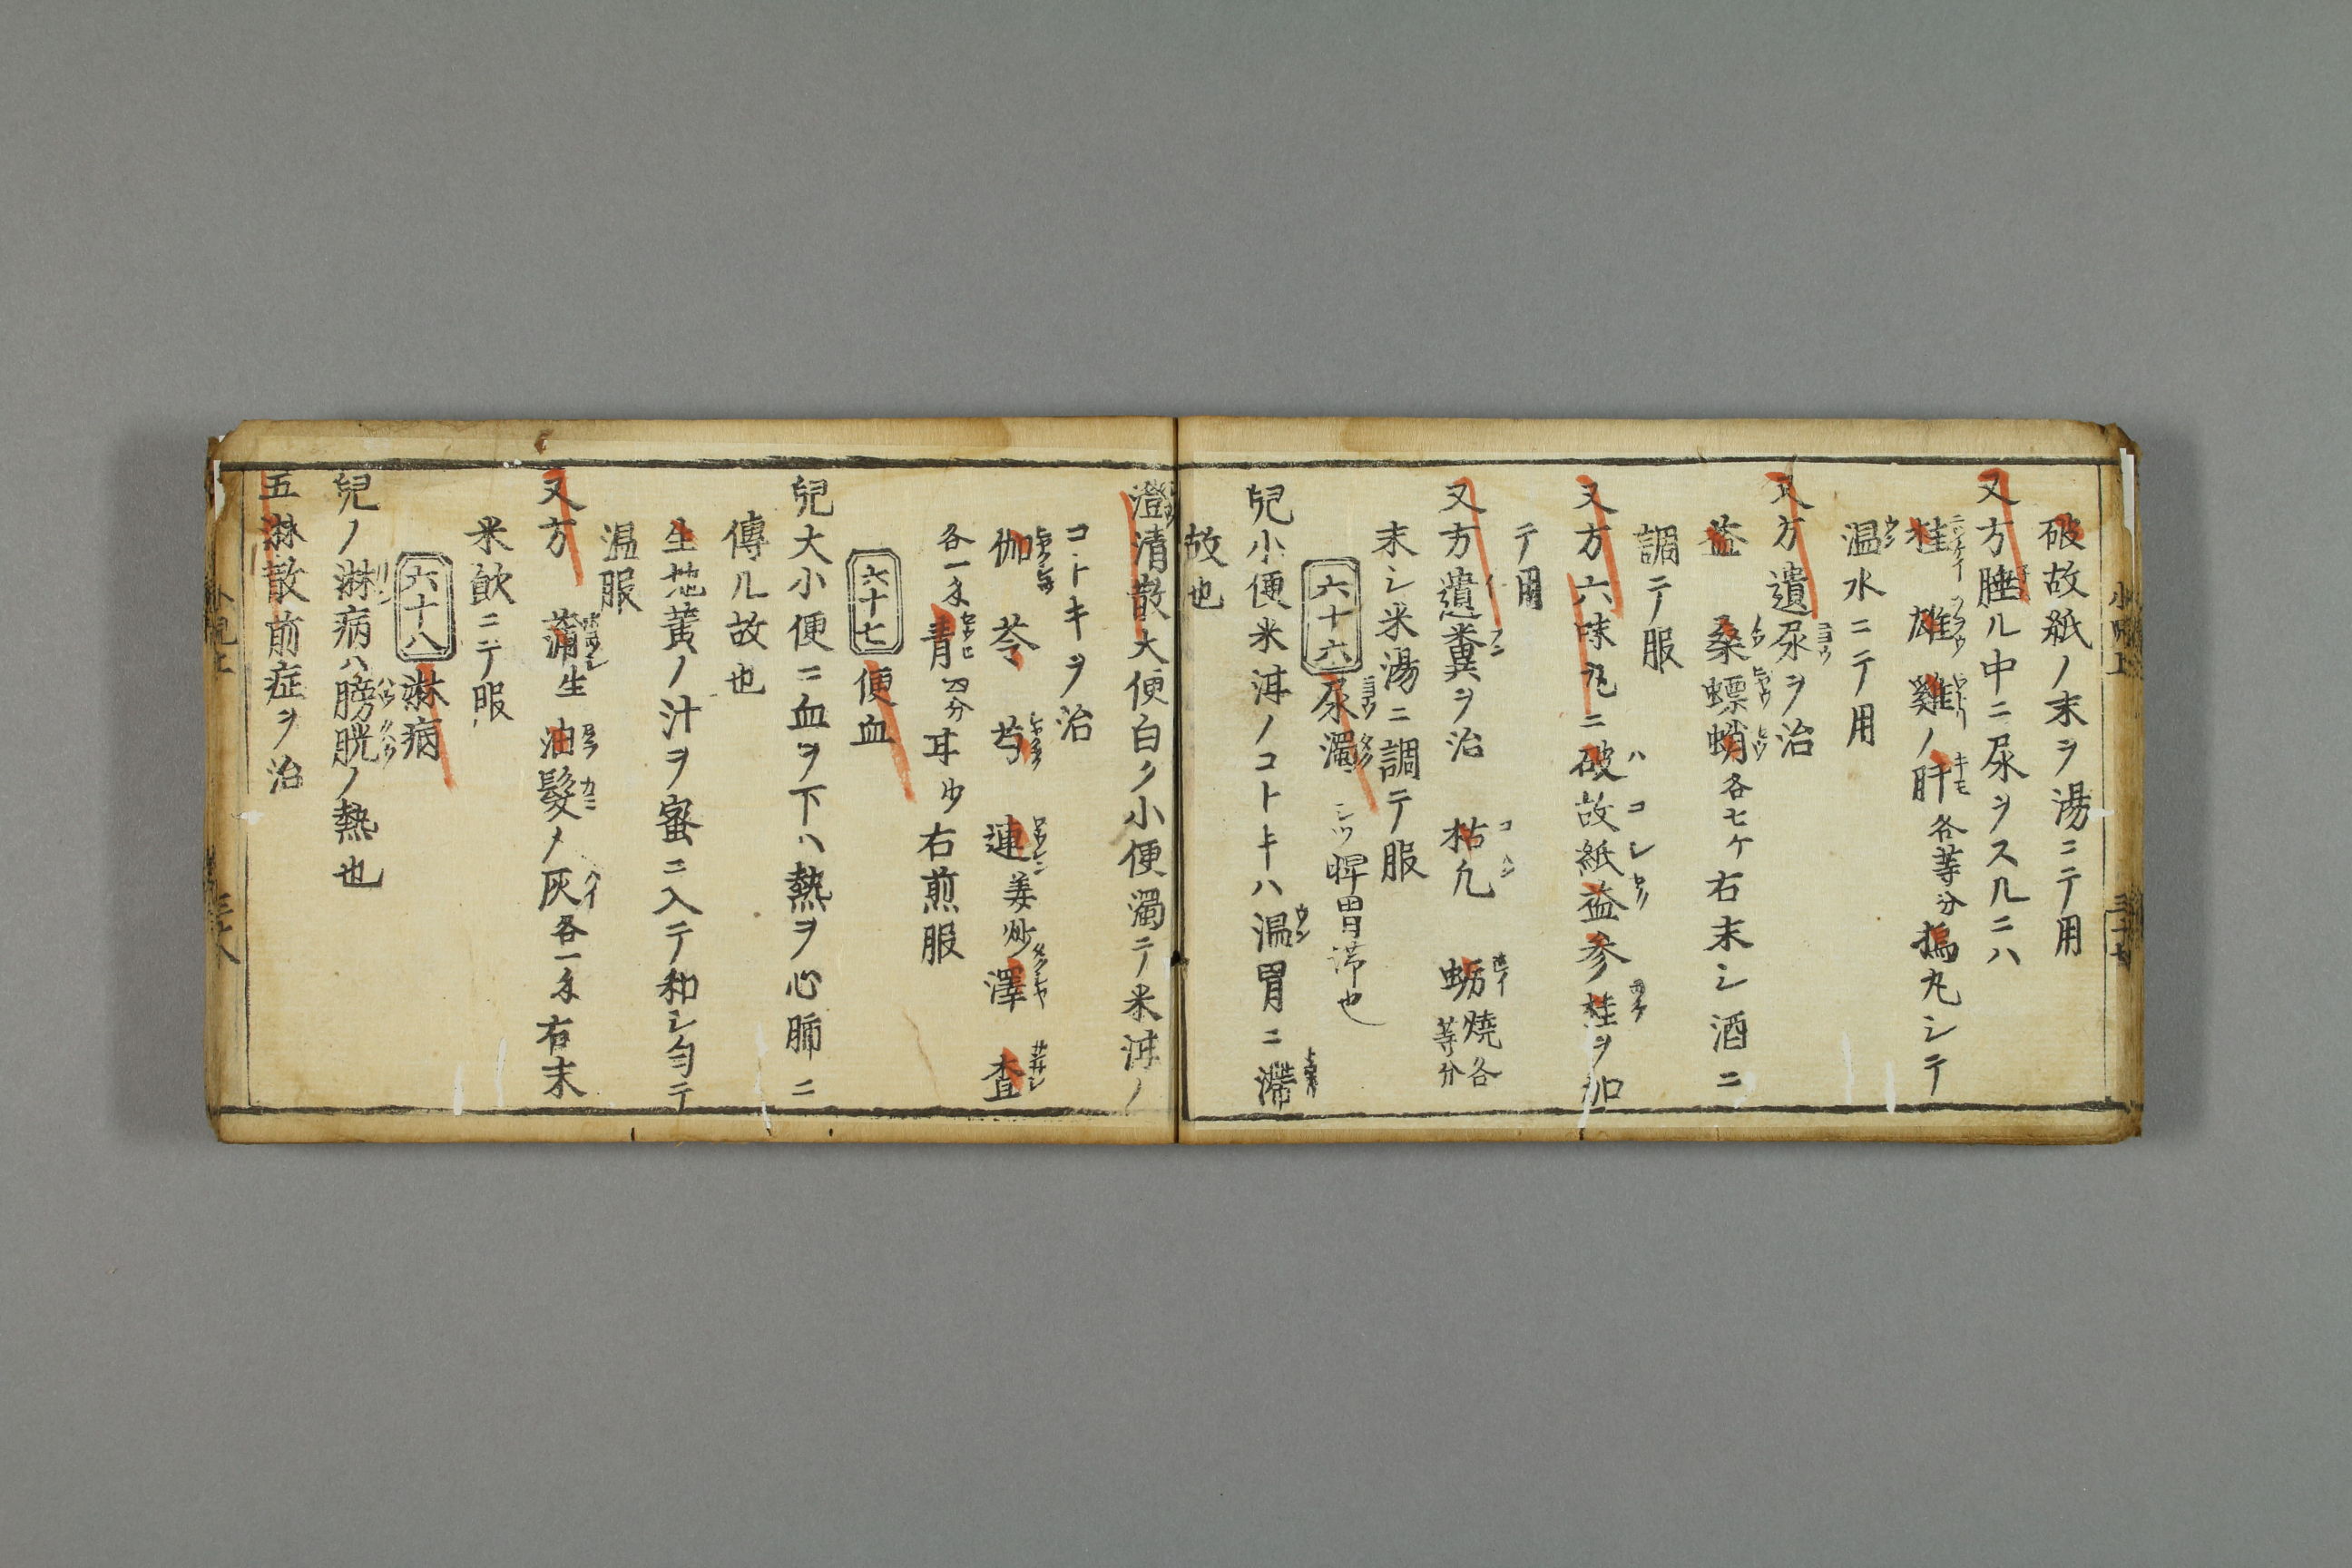 破故紙ノ末ヲ湯ニテ用
又方睡ル中ニ尿ヲスルニハ
桂 雄雞ノ肝各等分搗丸シテ
温水ニテ用
又方遺尿ヲ治
益 桑螵蛸各七ケ右末シ酒ニ
調テ服
又方六味丸ニ破故紙益参桂ヲ加
テ用
又方遺糞ヲ治 枯凢 蛎焼各等分
末シ米湯ニ調テ服
六十六 尿濁 脾胃滞也
兒小便米泔ノコトキハ温胃ニ滯
故也
澄清散大便白ク小便濁テ米泔ノ
コトキヲ治
伽 苓 芎 連姜炒 澤 査
各一匁 青四分 耳少右煎服
六十七 便血
兒大小便ニ血ヲ下ハ熱ヲ心肺ニ
傳ル故也
生地黄ノ汁ヲ蜜ニ入テ和シ匀テ
温服
又方 蒲生 油髮ノ灰各一匁右末
米飲ニテ服
六十八 淋病
兒ノ淋病ハ膀胱ノ熱也
五淋散前症ヲ治